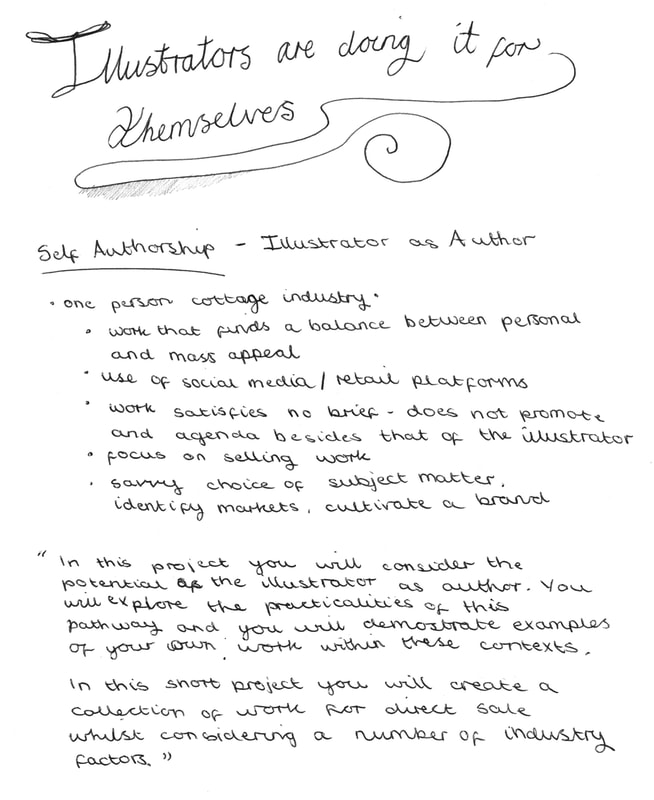 Illustrators are doing it for
themselves
Self Authorship - Illustrator as Author
• one person cottage industry.
• work that finds a balance between personal
and mass appeal
• use of social media / retail platforms
• work satisfies no brief - does not promote
and agenda besides that of the illustrator
• focus on selling work
• savvy choice of subject matter,
identify markets, cultivate a brand
" In this project you will consider the
potential of the illustrator as author. You
will explore the practicalities of this
pathway and you will demostrate examples
of your own work within these contexts.
In this short project you will create a
collection of work for direct sale
whilst considering a number of industry
factors. "